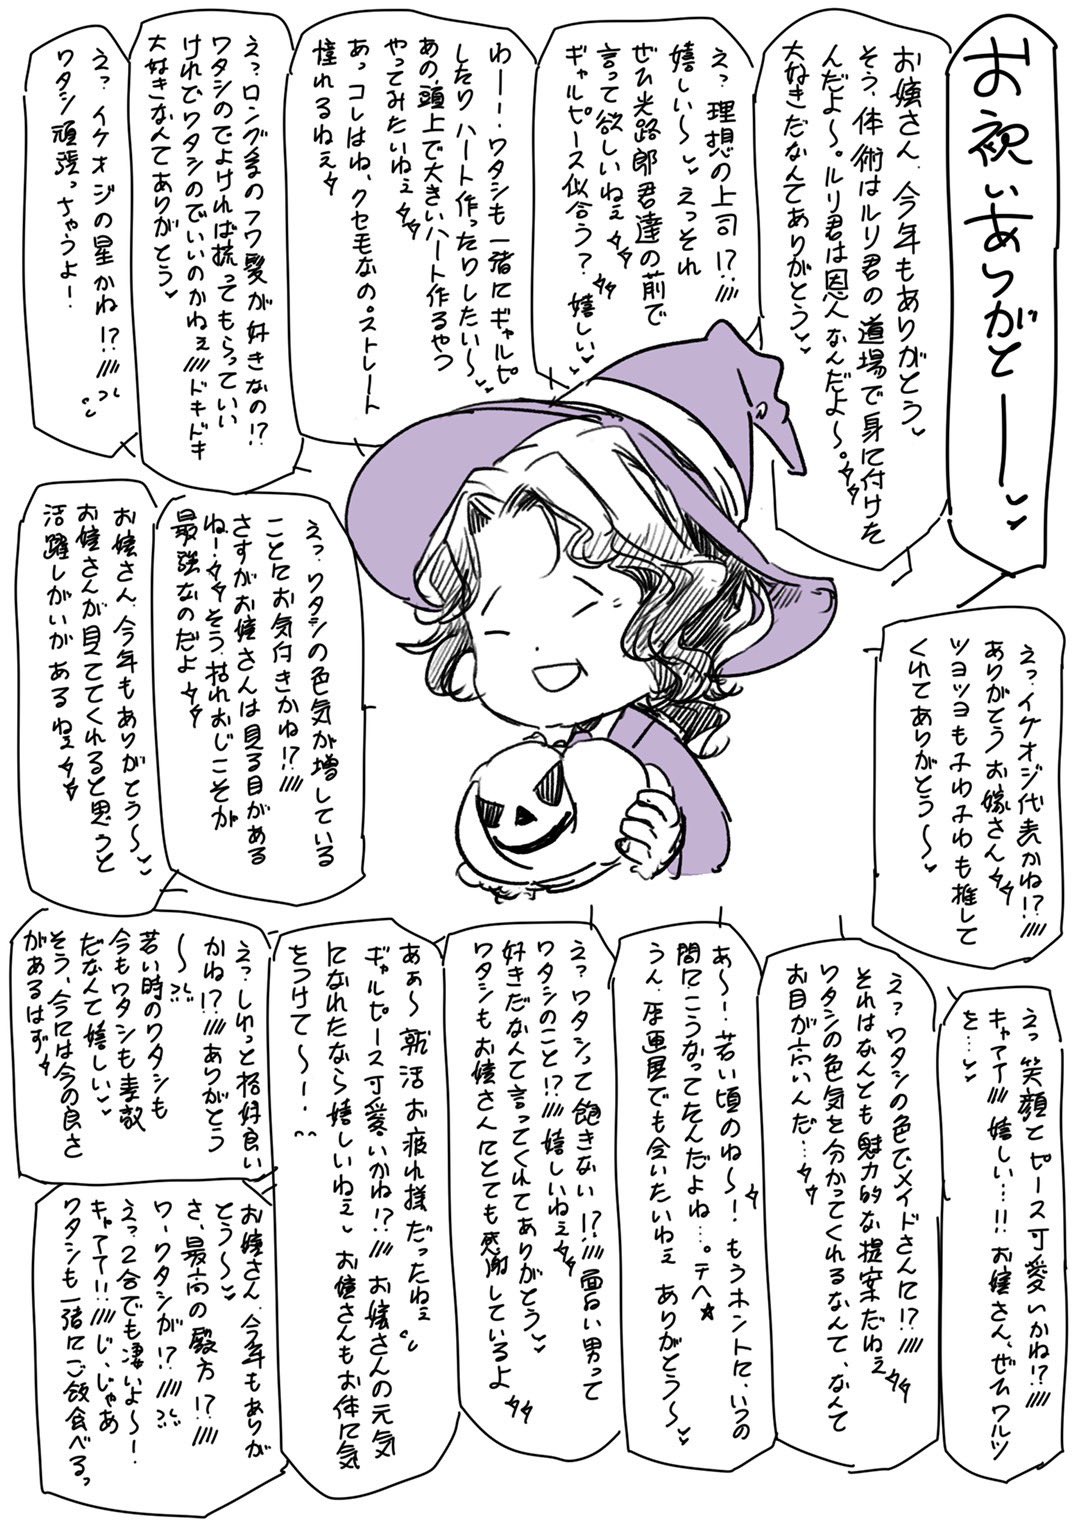 お祝いありがとー♥
お嬢さん、今年もありがとう♥
そう、体術はルリ君の道場で身に付けた
んだよ〜。ルリ君は恩人なんだよ〜。
大好きだなんてありがとう♥
えっ、理想の上司!?
嬉しい〜♥ えっそれ
ぜひ光路郎君達の前で
言って欲しいねぇ
ギャルピース似合う? 嬉しい♥
わー!ワタシも一緒にギャルピ
したりハート作ったりしたい〜♥
あの、頭上で大きいハート作るやつ
やってみたいねぇ
あっ コレはね、クセ毛なの。ストレート
憧れるねぇ
えっ、ロング系のフワ髪が好きなの!?
ワタシのでよければ梳ってもらっていい
けれどワタシのでいいのかねぇ ドキドキ
大好きなんてありがとう♥
えっ、イケオジの星かね!?
ワタシ頑張っちゃうよ!
えっ、イケオジ代表かね!?
ありがとうお嬢さん
ツヨツヨもみわみわも推して
くれてありがとう〜♥
えっ、ワタシの色気が増している
ことにお気付きかね!?
さすがお嬢さんは見る目がある
ねー!そう、枯れおじこそが
最強なのだよ
お嬢さん、今年もありがとう〜♥
お嬢さんが見ててくれると思うと
活躍しがいがあるねぇ
えっ 笑顔とピース可愛いかね!?
キャアア 嬉しい…!! お嬢さん、ぜひワルツ
を…♥
えっ、ワタシの色でメイドさんに!?
それはなんとも魅力的な提案だねぇ
ワタシの色気を分かってくれるなんて、なんて
お目が高いんだ…
あ〜!若い頃のね〜!もうホントに、いつの
間にこうなってたんだよね…。テヘ☆
うん、原画展でも会いたいねぇ ありがとう〜♥
えっ、ワタシって飽きない!?面白い男って
ワタシのこと!?嬉しいねぇ
好きだなんて言ってくれてありがとう♥
ワタシもお嬢さんにとても感謝しているよ
ああ〜 就活お疲れ様だったねぇ
ギャルピース可愛いかね!?お嬢さんの元気
になれたなら嬉しいねぇ お嬢さんもお体に気
をつけて〜!
えっ、しゅっと格好良い
かね!?ありがとう
〜♥
若い時のワタシも
今もワタシも素敵
だなんて嬉しい♥
そう、今には今の良さ
があるはず
お嬢さん、今年もありが
とう〜♥
さ、最高の殿方!?
ワ…ワタシが!?
えっ、2合でも凄いよ〜!
キャアア!!じ、じゃあ
ワタシも一緒にご飯食べるっ